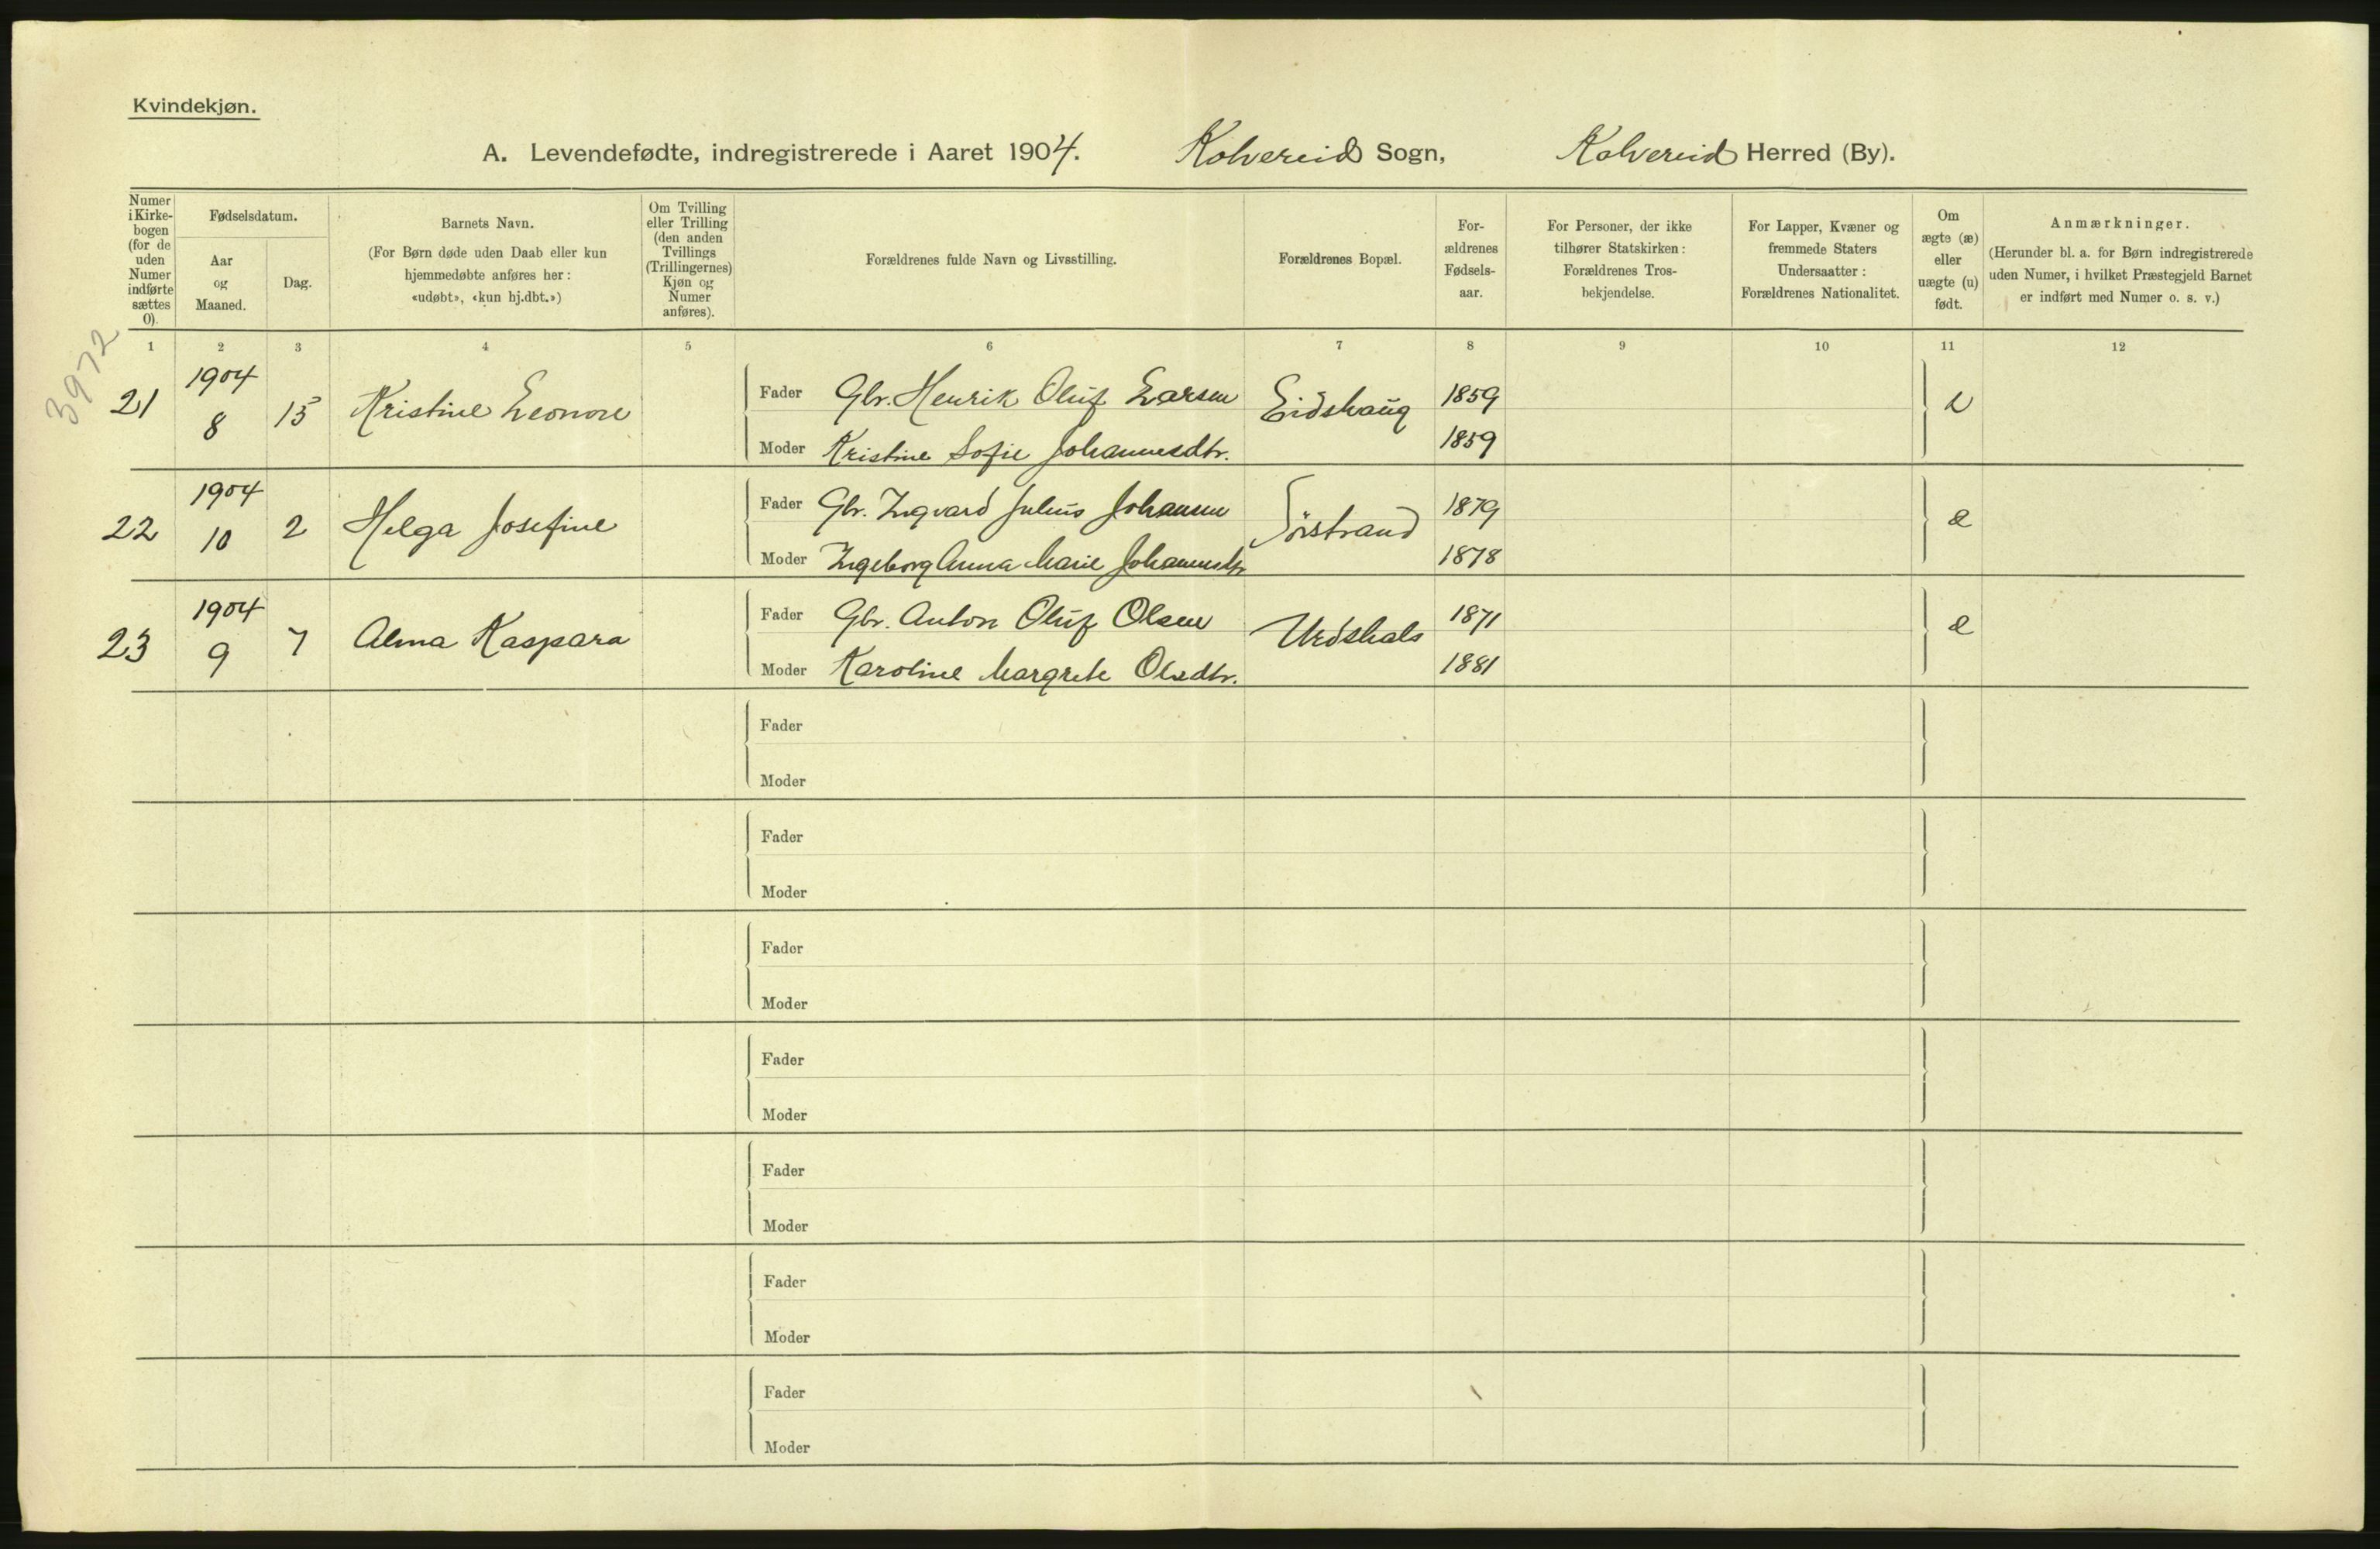 Kvindekjøn.
A. Levendefødte, indregistrerede i Aaret 1904. Kolvereid Sogn, Kolvereid Herred (By).
Numer i Kirkebogen (for de uden Numer indførte sættes 0).
Fødselsdatum.
Aar og Maaned.
Dag.
Barnets Navn.
(For Børn døde uden Daab eller kun
hjemmedøbte anføres her:
«udøbt», «kun hj.dbt.»)
Om Tvilling
eller Trilling
(den anden
Tvillings
(Trillingernes)
Kjøn og
Numer
anføres).
Forældrenes fulde Navn og Livsstilling.
Forældrenes Bopæl.
For-
ældrenes
Fødsels-
aar.
For Personer, der ikke
tilhører Statskirken:
Forældrenes Tros-
bekjendelse.
For Lapper, Kvæner og
fremmede Staters
Undersaatter:
Forældrenes Nationalitet.
Om
ægte (æ)
eller
uægte (u)
født.
Anmærkninger.
(Herunder bl. a. for Børn indregistrerede
uden Numer, i hvilket Præstegjeld Barnet
er indført med Numer o. s. v.)
1 2 3 4 5 6 7 8 9 10 11 12
3972
21 1904 8 15 Kristine Leonore Fader Gbr. Henrik Oluf Larsen Eidshaug 1859
Moder Kristine Sofie Johannesdtr. 1859
22 1904 10 2 Helga Josefine Fader Gbr. Ingvard Julius Johansen Sörstrand 1879 æ
Moder Ingeborg Anna Marie Johannesdtr 1878
23 1904 9 7 Alma Kaspara Fader Gbr. Anton Oluf Olsen Urdshals 1871 æ
Moder Karoline Margrete Olsdtr. 1881
Fader
Moder
Fader
Moder
Fader
Moder
Fader
Moder
Fader
Moder
Fader
Moder
Fader
Moder